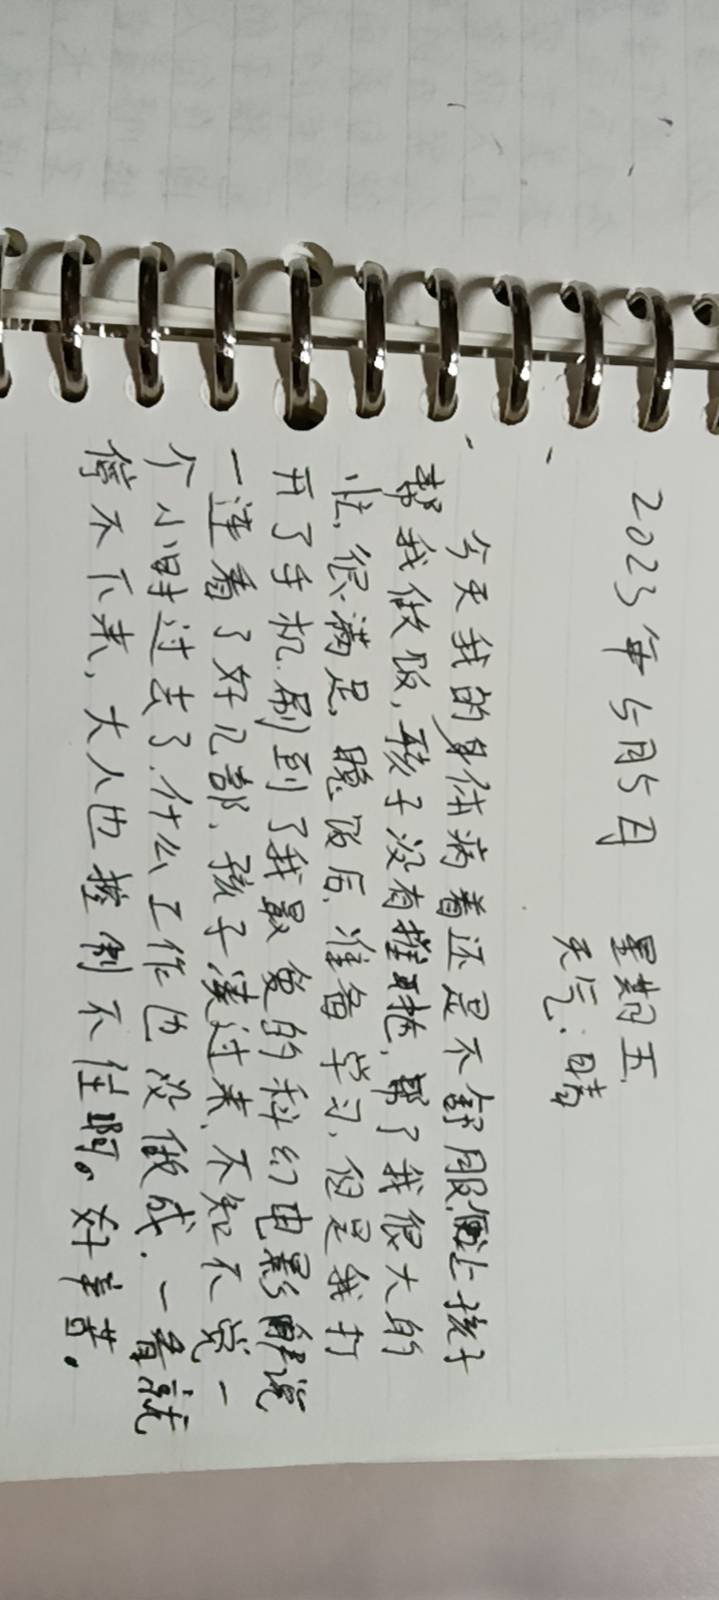 2023年5月5日 星期五
天气:晴
今天我的身体病着还是不舒服,便让孩子
帮我做饭,孩子没有推脱,帮了我很大的
忙,很满足,晚饭后,准备学习,但是我打
开了手机,刷到了我最爱的科幻电影解说
一连看了好几部,孩子凑过来,不知不觉一
个小时过去了,什么工作也没做成,一看就
停不下来,大人也控制不住啊。好辛苦。